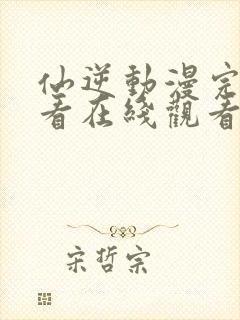 仙逆動漫完
看在綫觀看
宋哲宗